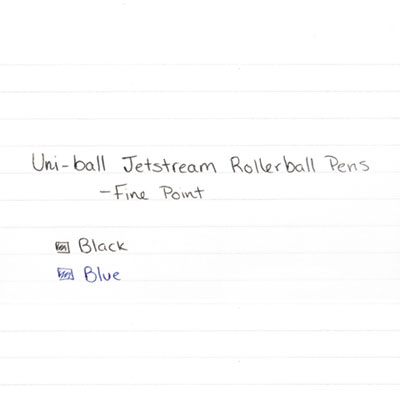 Uni-ball Jetstream Rollerball Pens
-Fine Point
Black
Blue